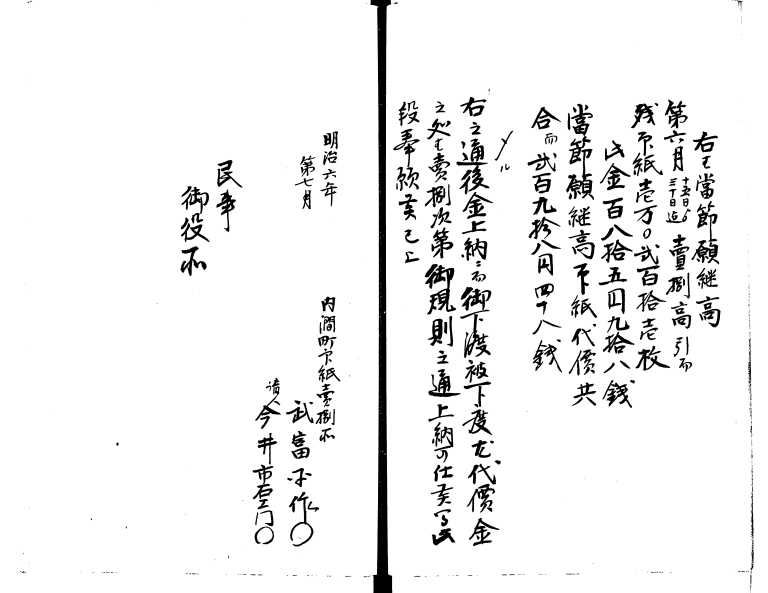 右ハ當節願継高
第六月十五日ゟ三十日迄賣捌高引而
残印紙壱万〇弐百拾壱枚
此金百八拾五円九拾八銭
當節願継高印紙代價共
合而弐百九拾八円四十八銭
〆ル
右之通後金上納ニ而御下渡被下度尤代價金
之処も賣捌次第御規則之通上納可仕候間此
段奉願候已上
明治六年
第七月
内澗町印紙賣捌所
武富平作〇
請人
今井市右エ門〇
民事
御役所